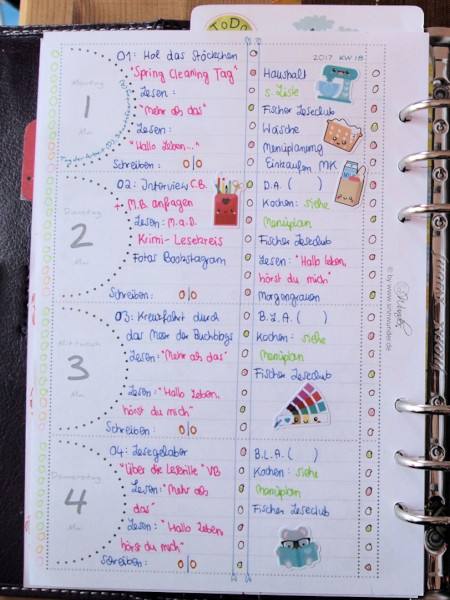 TODO
2017 KW 18
Montag
1
Mai
01: Hol das Stöckchen
"Spring Cleaning Tag"
Lesen:
"Mehr als das"
Lesen:
"Hallo Leben..."
Schreiben: 0|0
Haushalt
s. Liste
Fischer Leseclub
Wäsche
Menüplanung
Einkaufen MK
Dienstag
2
Mai
02: Interview C.B.
+ M.B. anfragen
Lesen: M.a.D.
Krimi-Lesekreis
Fotos Bookstagram
Schreiben: 0|0
D.A. ( )
Kochen: siehe
Menüplan
Fischer Leseclub
Lesen: "Hallo Leben,
hörst du mich"
Morgengrauen
Mittwoch
3
Mai
03: Kreuzfahrt durch
das Meer der Buchblogs
Lesen: "Mehr als das"
Lesen: "Hallo Leben,
hörst du mich"
Schreiben: 0|0
B.L.A. ( )
Kochen: siehe
Menüplan
Fischer Leseclub
Donnerstag
4
Mai
04: Lesegelaber
"Über die Leserille" VB
Lesen: "Mehr als
das"
Lesen: "Hallo Leben,
hörst du mich"
Schreiben: 0|0
B.L.A. ( )
Kochen: siehe
Menüplan
Fischer Leseclub